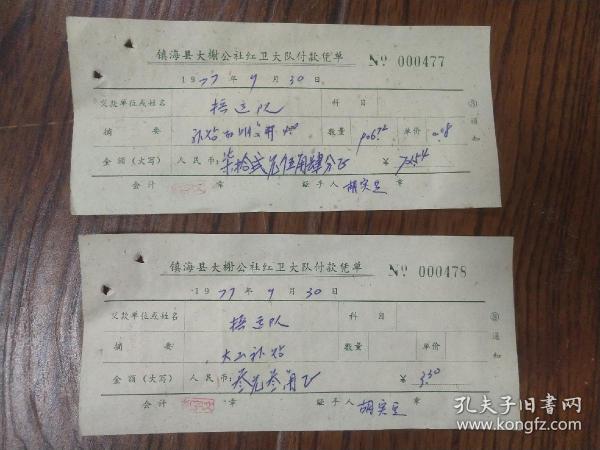 镇海县大榭公社红卫大队付款凭单 Nº 000477
1977年9月30日
交款单位或姓名 搬运队 科目
摘要 补贴 数量 单价 0.08
金额(大写) 人民币: 柒拾弍元伍角肆分正 ¥ 72.54
会计 章 证手人 胡实足 章
③通知
镇海县大榭公社红卫大队付款凭单 Nº 000478
1977年9月30日
交款单位或姓名 搬运队 科目
摘要 大工补贴 数量 单价
金额(大写) 人民币: 叁元叁角正 ¥ 3.30
会计 章 证手人 胡实足 章
③通知
孔夫子旧书网
www.kongfz.com